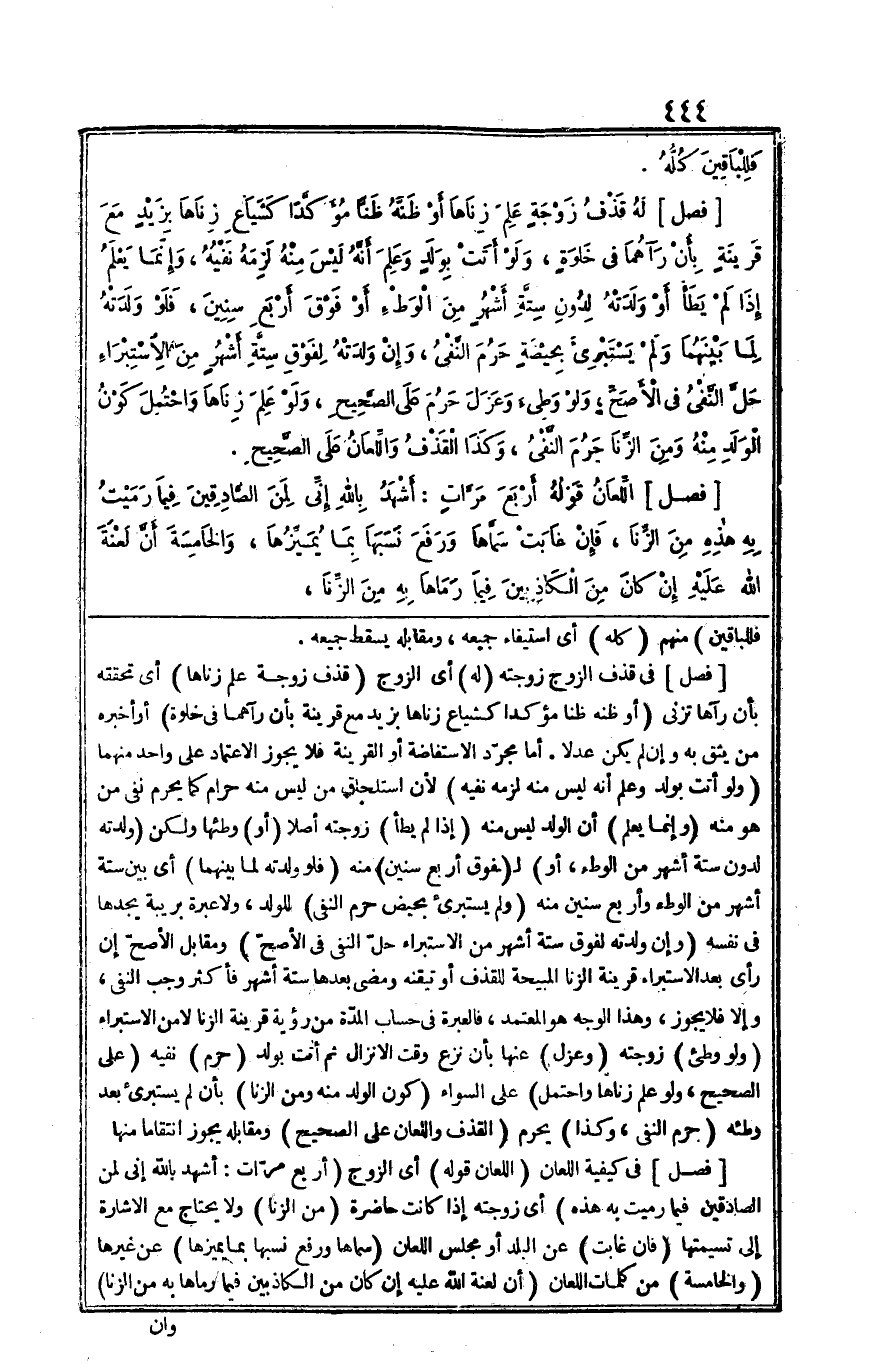 ٤٤٤
فَلِلْبَاقِينَ كُلُّهُ .
[ فصل ] لَهُ قَذْفُ زَوْجَةٍ عَلِمَ زِنَاهَا أَوْ ظَنَّهُ ظَنًّا مُؤَكَّدًا كَشَيَاعِ زِنَاهَا بِزَيْدٍ مَعَ
قَرِينَةٍ بِأَنْ رَآهُمَا فِى خَلْوَةٍ ، وَلَوْ أَتَتْ بِوَلَدٍ وَعَلِمَ أَنَّهُ لَيْسَ مِنْهُ لَزِمَهُ نَفْيُهُ ، وَإِنَّمَا يَعْلَمُ
إِذَا لَمْ يَطَأْ أَوْ وَلَدَتْهُ لِدُونِ سِتَّةِ أَشْهُرٍ مِنَ الْوَطْءِ أَوْ فَوْقَ أَرْبَعِ سِنِينَ ، فَلَوْ وَلَدَتْهُ
لِمَا بَيْنَهُمَا وَلَمْ يَسْتَبْرِئْ بِحَيْضَةٍ حَرُمَ النَّفْىُ ، وَإِنْ وَلَدَتْهُ لِفَوْقِ سِتَّةِ أَشْهُرٍ مِنَ الِاسْتِبْرَاءِ
حَلَّ النَّفْىُ فِى الْأَصَحِّ ، وَلَوْ وَطِىءَ وَعَزَلَ حَرُمَ عَلَى الصَّحِيحِ ، وَلَوْ عَلِمَ زِنَاهَا وَاحْتُمِلَ كَوْنُ
الْوَلَدِ مِنْهُ وَمِنَ الزِّنَا حَرُمَ النَّفْىُ ، وَكَذَا الْقَذْفُ وَاللِّعَانُ عَلَى الصَّحِيحِ .
[ فصل ] اللِّعَانُ قَوْلُهُ أَرْبَعَ مَرَّاتٍ : أَشْهَدُ بِاللهِ إِنِّى لَمِنَ الصَّادِقِينَ فِيمَا رَمَيْتُ
بِهِ هٰذِهِ مِنَ الزِّنَا ، فَإِنْ غَابَتْ سَمَّاهَا وَرَفَعَ نَسَبَهَا بِمَا يُمَيِّزُهَا ، وَالخَامِسَةَ أَنَّ لَعْنَةَ
الله عَلَيْهِ إِنْ كَانَ مِنَ الْكَاذِبِينَ فِيمَا رَمَاهَا بِهِ مِنَ الزِّنَا ،
فللباقين ) منهم ( كله ) أى استيفاء جميعه ، ومقابله يسقط جميعه .
[ فصل ] فى قذف الزوج زوجته ( له ) أى الزوج ( قذف زوجة علم زناها ) أى تحققه
بأن رآها تزنى ( أو ظنه ظنا مؤكدا كشياع زناها بزيد مع قرينة بأن رآهما فى خلوة ) أو أخبره
من يثق به وإن لم يكن عدلا . أما مجرّد الاستفاضة أو القرينة فلا يجوز الاعتماد على واحد منهما
( ولو أتت بولد وعلم أنه ليس منه لزمه نفيه ) لأن استلحاق من ليس منه حرام كما يحرم نفى من
هو منه ( وإنما يعلم ) أن الولد ليس منه ( إذا لم يطأ ) زوجته أصلا ( أو ) وطئها ولكن ( ولدته
لدون ستة أشهر من الوطء ، أو ) لـ( فوق أربع سنين ) منه ( فلو ولدته لما بينهما ) أى بين ستة
أشهر من الوطء وأربع سنين منه ( ولم يستبرئ بحيض حرم النفى ) للولد ، ولا عبرة بريبة يجدها
فى نفسه ( وإن ولدته لفوق ستة أشهر من الاستبراء حلّ النفى فى الأصحّ ) ومقابل الأصحّ إن
رأى بعد الاستبراء قرينة الزنا المبيحة للقذف أو تيقنه ومضى بعدها ستة أشهر فأكثر وجب النفى ،
وإلا فلا يجوز ، وهذا الوجه هو المعتمد ، فالعبرة فى حساب المدّة من رؤية قرينة الزنا لا من الاستبراء
( ولو وطئ ) زوجته ( وعزل ) عنها بأن نزع وقت الانزال ثم أتت بولد ( حرم ) نفيه ( على
الصحيح ، ولو علم زناها واحتمل ) على السواء ( كون الولد منه ومن الزنا ) بأن لم يستبرئ بعد
وطئه ( حرم النفى ، وكذا ) يحرم ( القذف واللعان على الصحيح ) ومقابله يجوز انتقاما منها
[ فصل ] فى كيفية اللعان ( اللعان قوله ) أى الزوج ( أربع مرّات : أشهد بالله إنى لمن
الصادقين فيما رميت به هذه ) أى زوجته إذا كانت حاضرة ( من الزنا ) ولا يحتاج مع الاشارة
إلى تسيمتها ( فان غابت ) عن البلد أو مجلس اللعان ( سماها ورفع نسبها بما يميزها ) عن غيرها
( والخامسة ) من كلمات اللعان ( أن لعنة الله عليه إن كان من الكاذبين فيما رماها به من الزنا )
وان